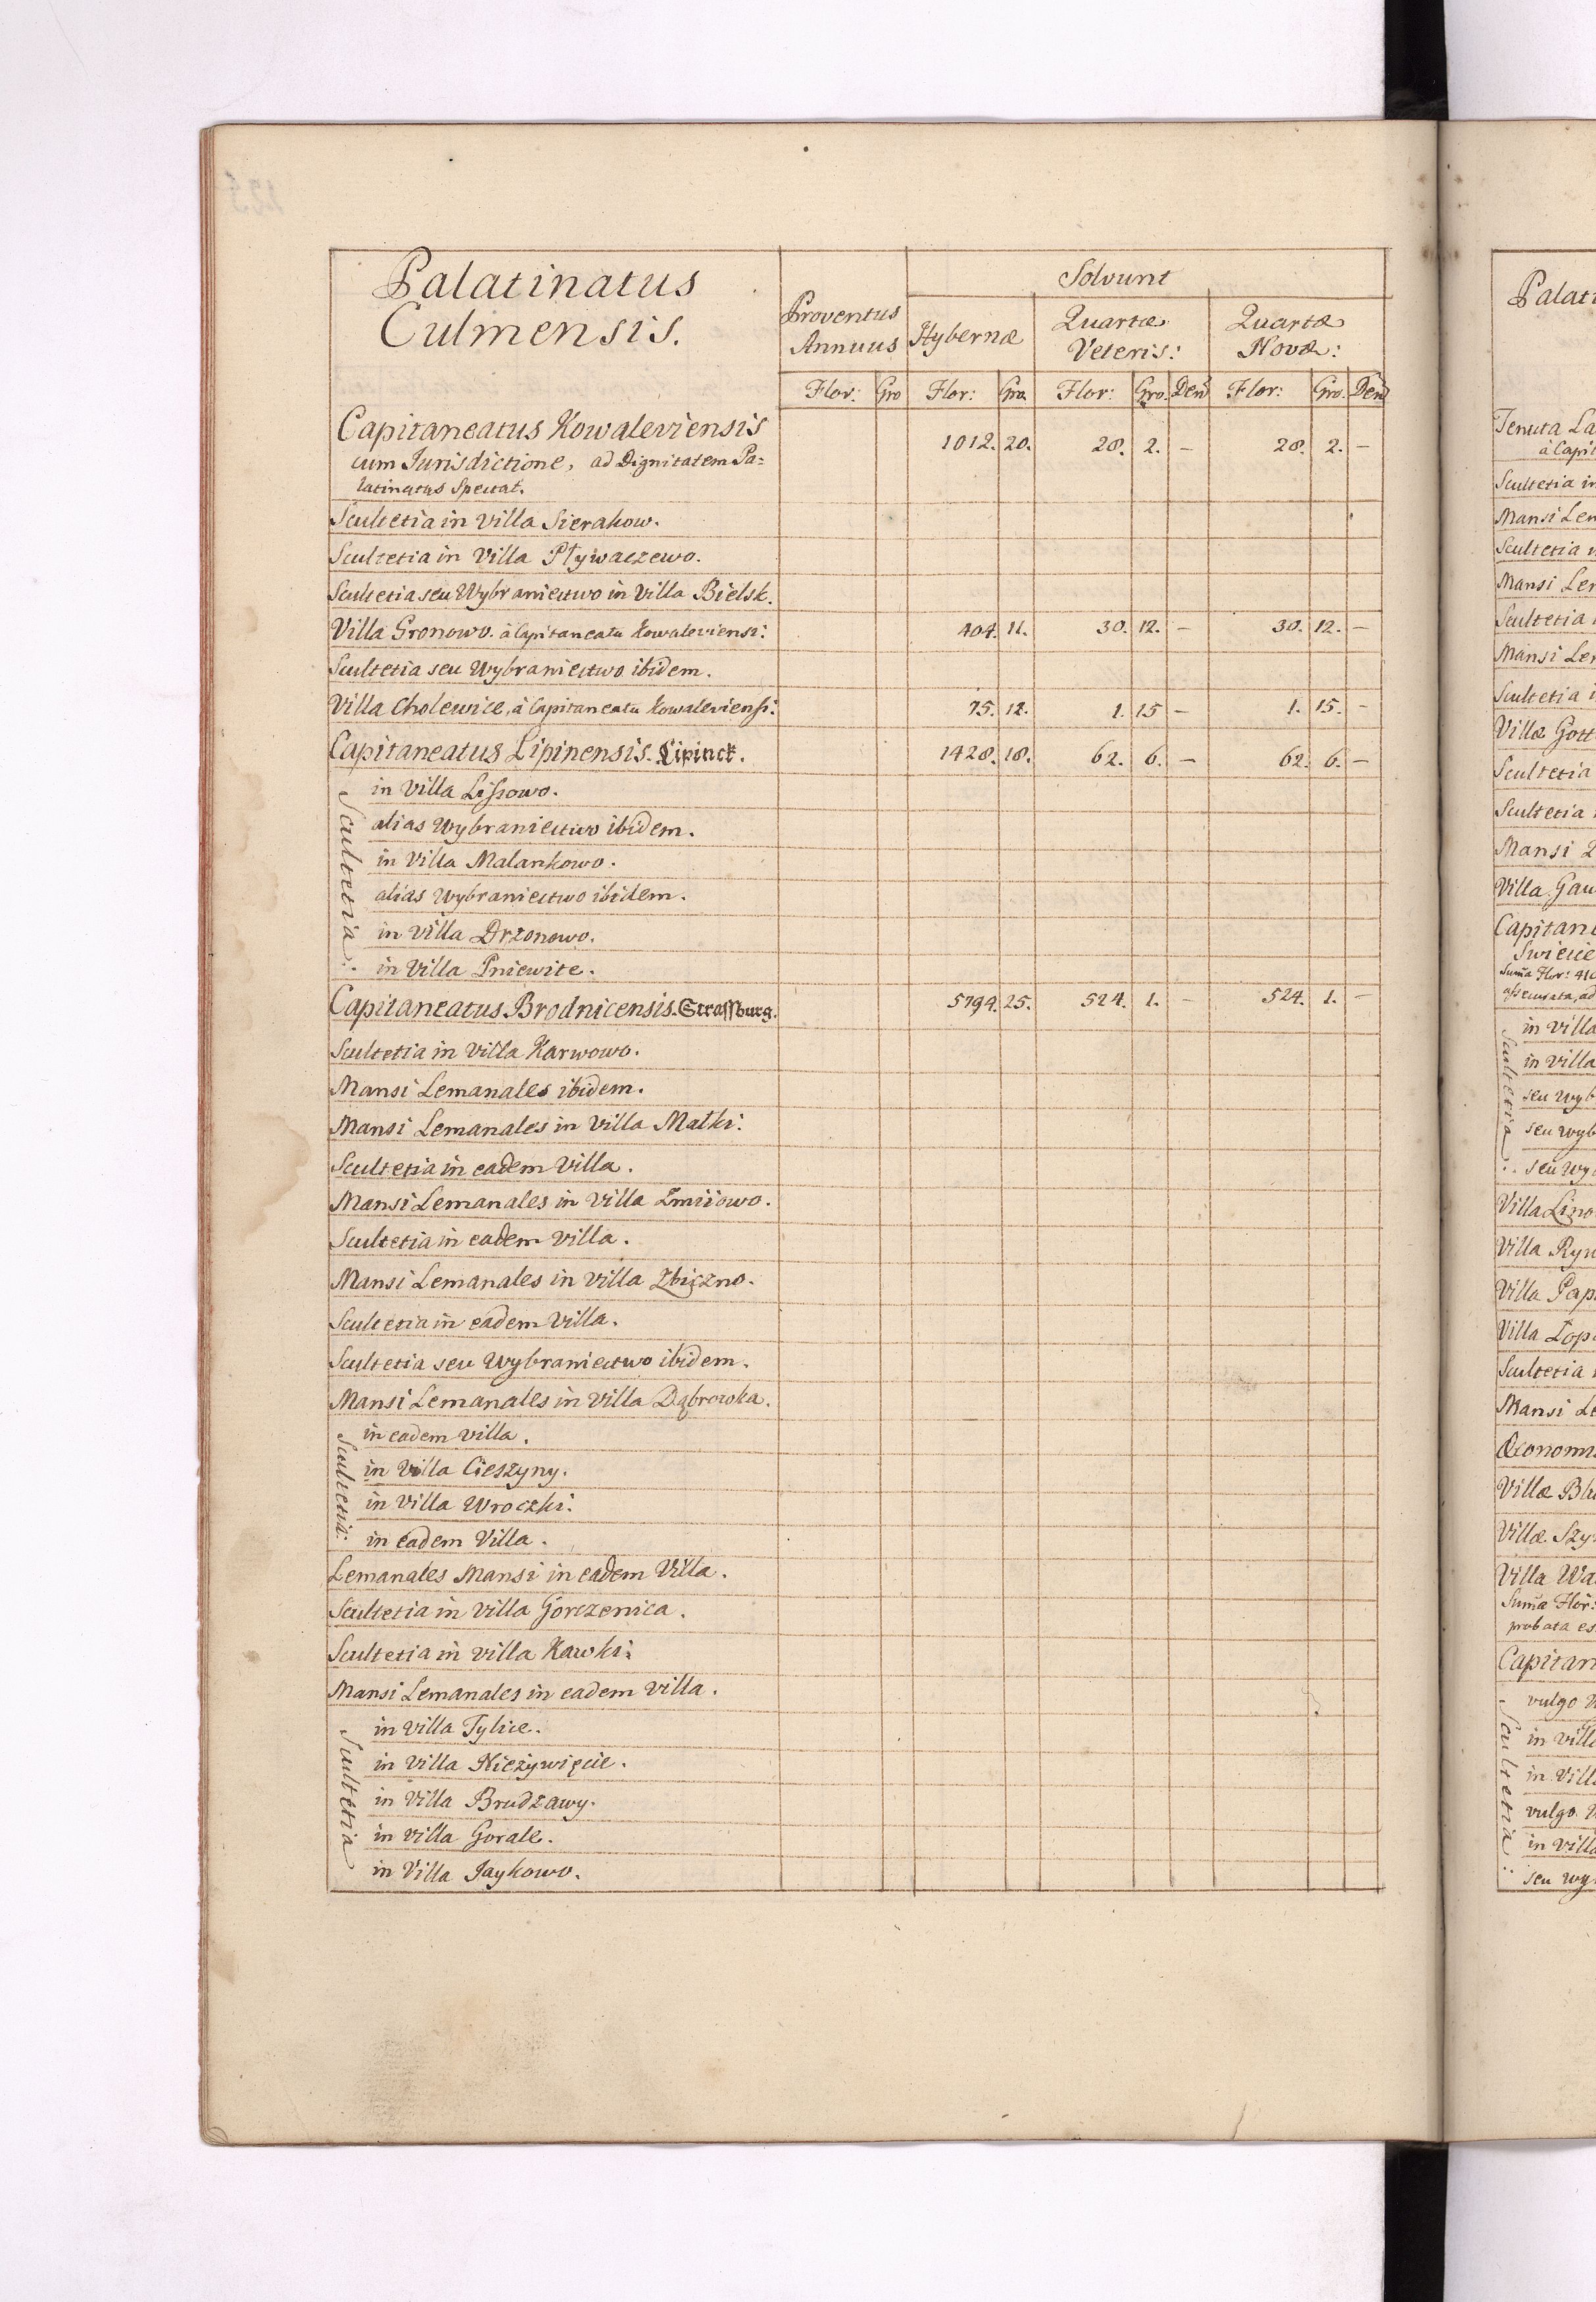 Palatinatus
Culmensis.
Proventus
Annuus
Solvunt
Hybernæ
Quartæ
Veteris:
Quartæ
Novæ:
Flor: Gro Flor: Gro. Flor: Gro. Den Flor: Gro. Den
Capitaneatus Kowaleviensis 1012. 20. 28. 2. – 28. 2. –
cum Jurisdictione, ad Dignitatem Pa=
latinatus Spectat.
Scultetia in Villa Sierakow.
Scultetia in Villa Plywaczewo.
Scultetia seu Wybraniectwo in Villa Bielsk.
Villa Gronowo. à Capitaneatu Kowaleviensi: 404. 11. 30. 12. – 30. 12. –
Scultetia seu Wybraniectwo ibidem.
Villa Cholewice, à Capitaneatu Kowaleviensi: 75. 12. 1. 15 – 1. 15. –
Capitaneatus Lipinensis. Lipinck. 1428. 18. 62. 6. – 62. 6. –
Scultetia:
in Villa Lissowo.
alias Wybraniectwo ibidem.
in Villa Malankowo.
alias Wybraniectwo ibidem.
in Villa Drzonowo.
in Villa Pniewite.
Capitaneatus Brodnicensis. Strassburg. 5794. 25. 524. 1. – 524. 1. –
Scultetia in Villa Karwowo.
Mansi Lemanales ibidem.
Mansi Lemanales in Villa Malki:
Scultetia in eadem Villa.
Mansi Lemanales in Villa Zmiiowo.
Scultetia in eadem Villa.
Mansi Lemanales in Villa Zbiczno.
Scultetia in eadem Villa.
Scultetia seu Wybraniectwo ibidem.
Mansi Lemanales in Villa Dąbrowka.
Scultetia:
in eadem Villa.
in Villa Cieszyny.
in Villa Wroczki:
in eadem Villa.
Lemanales Mansi in eadem Villa.
Scultetia in Villa Gorczenica.
Scultetia in Villa Kawki:
Mansi Lemanales in eadem Villa.
Scultetia
in Villa Tylice.
in Villa Nieżywięcie.
in Villa Brudzawy.
in Villa Gorale.
in Villa Jaykowo.
Palati
Tenuta La
à Capit
Scultetia in
Mansi Lem
Scultetia
Mansi Lem
Scultetia
Mansi Lem
Scultetia i
Villæ Gott
Scultetia
Scultetia
Mansi
Villa Gau
Capitane
Swiecie
in Villa
in Villa
seu Wyb
seu Wyb
seu Wy
Scultetia:
Villa Lino
Villa Ryn
Villa Pap
Villa Lop
Scultetia
Mansi Le
Œconomi
Villæ
Villæ Szy
Villa Wa
Summæ Flor:
probata es
Capitan
Scultetia:
vulgo
in Villa
in Villa
vulgo
in Villa
seu Wy